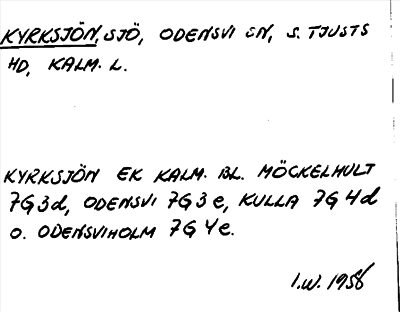 KYRKSJÖN, SJÖ, ODENSVI SN, S. TJUSTS
HD, KALM. L.
KYRKSJÖN EK KALM. BL. MÖCKELHULT
7G3d, ODENSVI 7G3e, KULLA 7G4d
O. ODENSVIHOLM 7G4e.
I.W. 1958